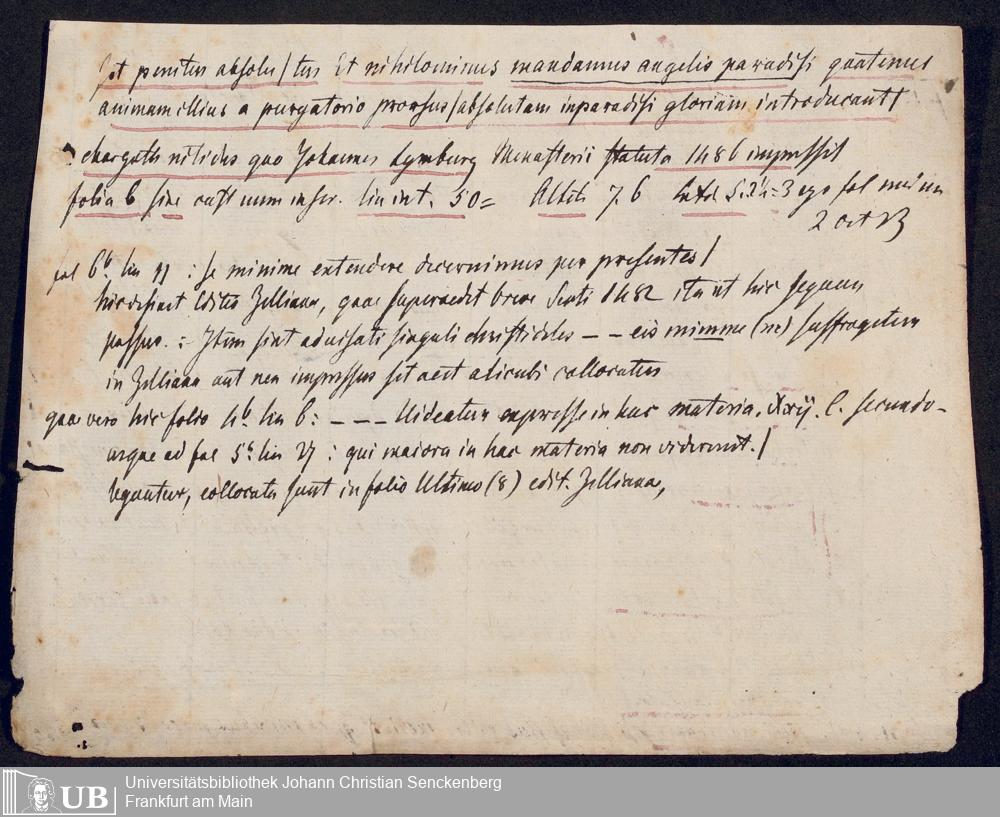 sit penitus absolu/tus Et nihilominus mandamus angelis paradisi quatenus
animam illius a purgatorio prorsus/absolutam inparadisi gloriam introducant/
nitidis quo Johannes Lymburg Monasterii statuta 1486 impressit
folia 6 sine cust num inscr. lin int. 50= Altit 7. 6 Latit 5. 2½=3 ego fol
2 oct
fol 6b lin 11 : se minime extendere decernimus per presentes/
hic desinit Editio Zelliana, quae supersedit breve Sixti 1482 ita ut hic sequens
passus. :- Item sint aduisati singuli christicoles - - eis minime (ne) suffragetur
in Zelliana aut non impressus sit aut alicubi collocatus
quae vero hic folio 4b lin 6: - - - Uideatur expresse in hac materia. xxij. C. secundo-
usque ad fol 5b lin 27 : qui maiora in hac materia non viderunt./
leguntur, collocata sunt in folio Ultimo (8) edit. Zelliana,
Universitätsbibliothek Johann Christian Senckenberg
Frankfurt am Main
UB